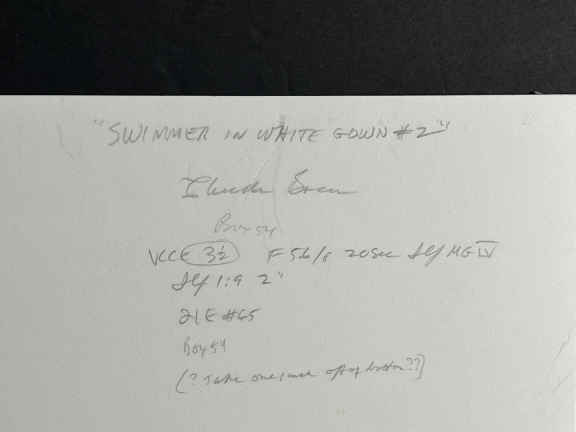 "SWIMMER IN WHITE GOWN #2"
Box 54
VCCE 3½ F 5.6/8 20sec Ilf MG IV
Ilf 1:9 2"
21E #65
Box 54
(? Take one inch off of bottom??)